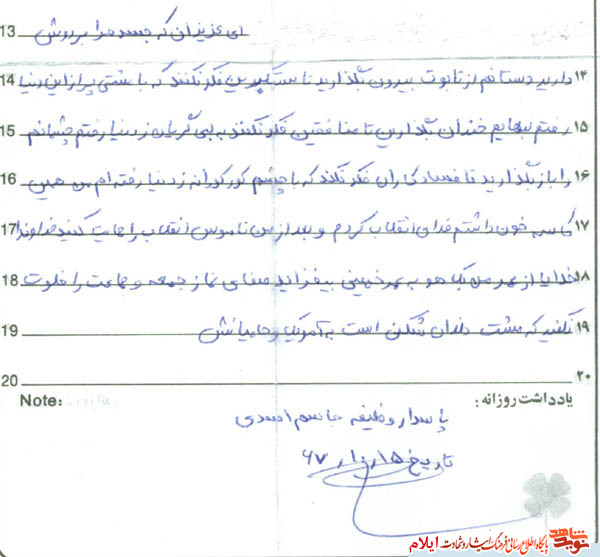 ای عزیزان که جسد مرا بر دوش 13
۱۴ دارید دستانم از تابوت بیرون بگذارید تا مستکبرین فکر نکنند که با مشتی پر از این دنیا 14
۱۵ رفتم لبهایم خندان بگذارین تا منافقین فکر نکنند به لبی گریان ز دنیا رفتم چشمانم 15
۱۶ را باز بگذارید تا فسادکاران فکر نکند که با چشم کورکورانه ز دنیا رفته ام من همین 16
۱۷ کاسه خون داشتم فدای انقلاب کردم و بعد از من ناموس انقلاب را حمایت کنید خداوندا 17
۱۸ خدایا از عمر من بکاهو به عمر خمینی بیفزاید صفای نماز جمعه و جماعت را خلوت 18
۱۹ نکنید که مشت دندان شکن است به آمریکا و حامیانش 19
۲۰ 20
یادداشت روزانه: Note:
پاسدار وظیفه جاسم اسدی
تاریخ ۶۷
نوید شاهد پایگاه اطلاع رسانی فرهنگ ایثار و شهادت ایلام